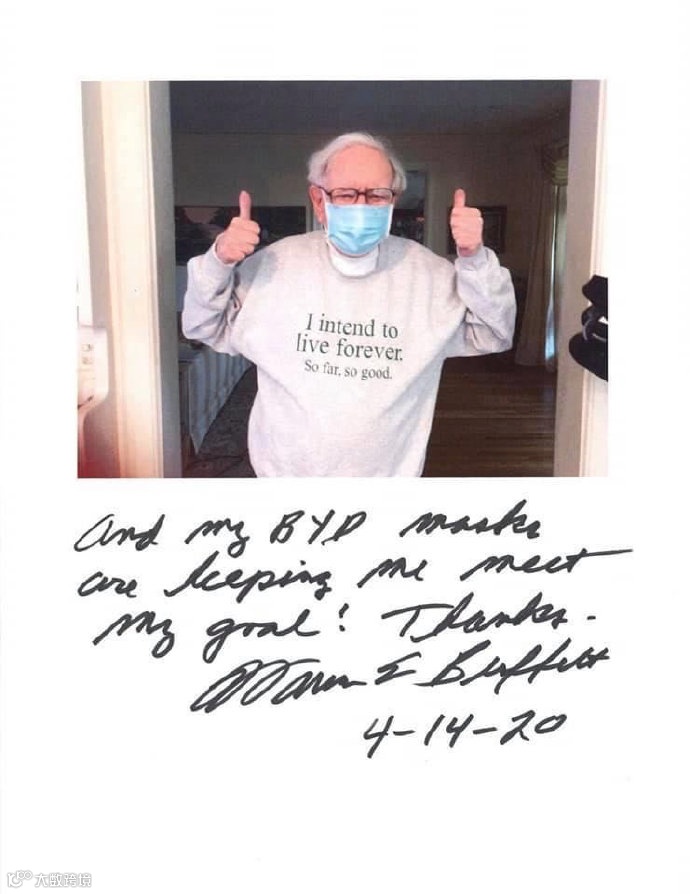 I intend to
live forever.
So far, so good.
And my BYD masks
are keeping me meet
my goal! Thanks.
Warren E Buffett
4-14-20
大数跨境